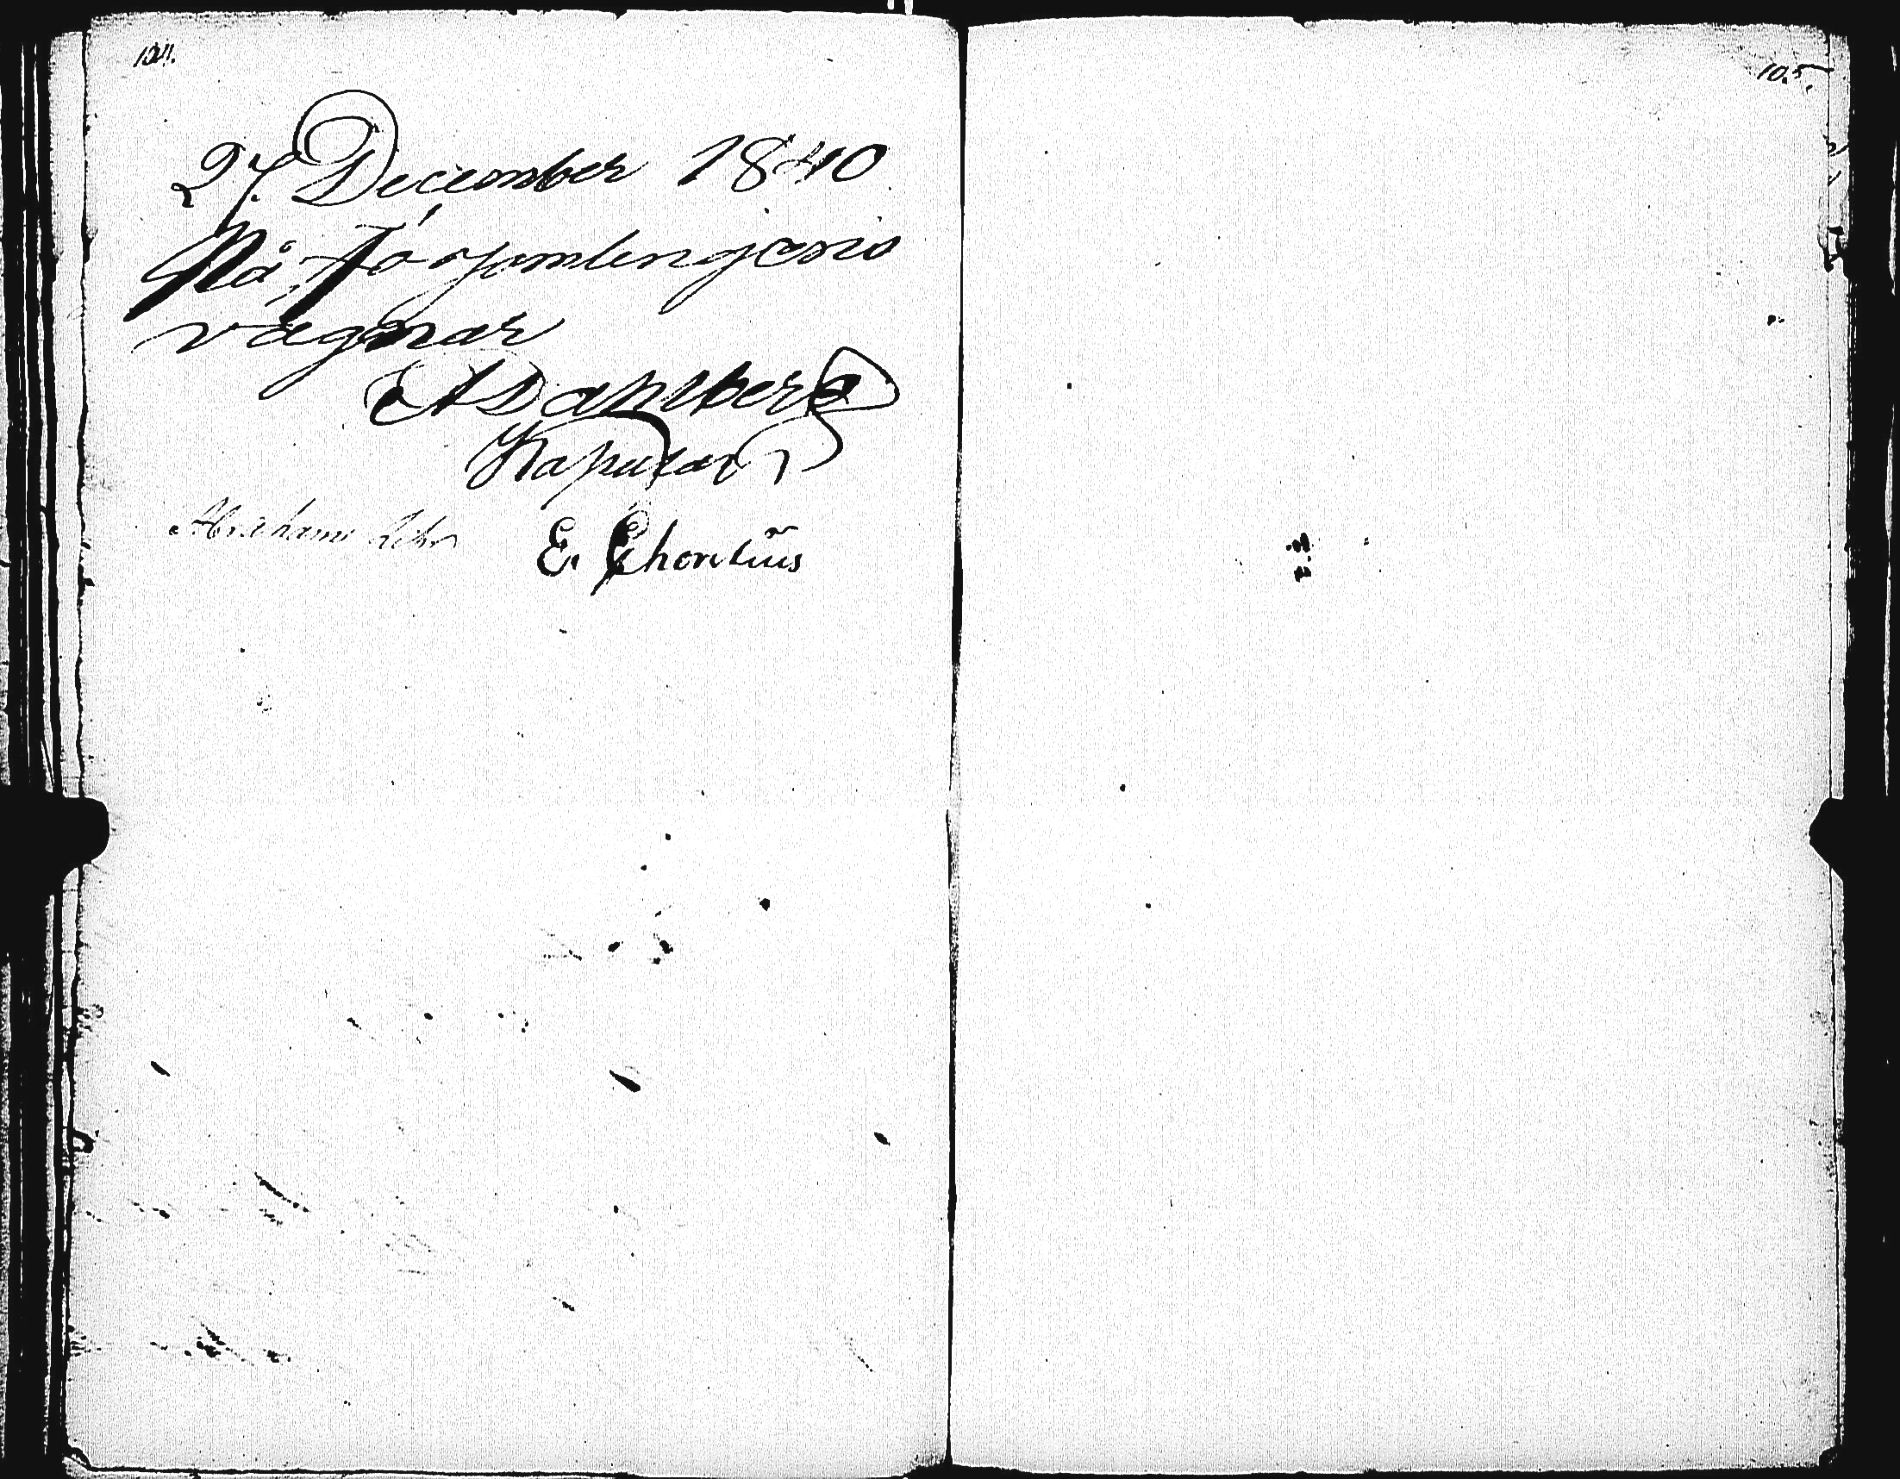 104.
27. December 1840
På Församlingens
vägnar
A Dahlberg
Kapellan
E. Chorelius
105.